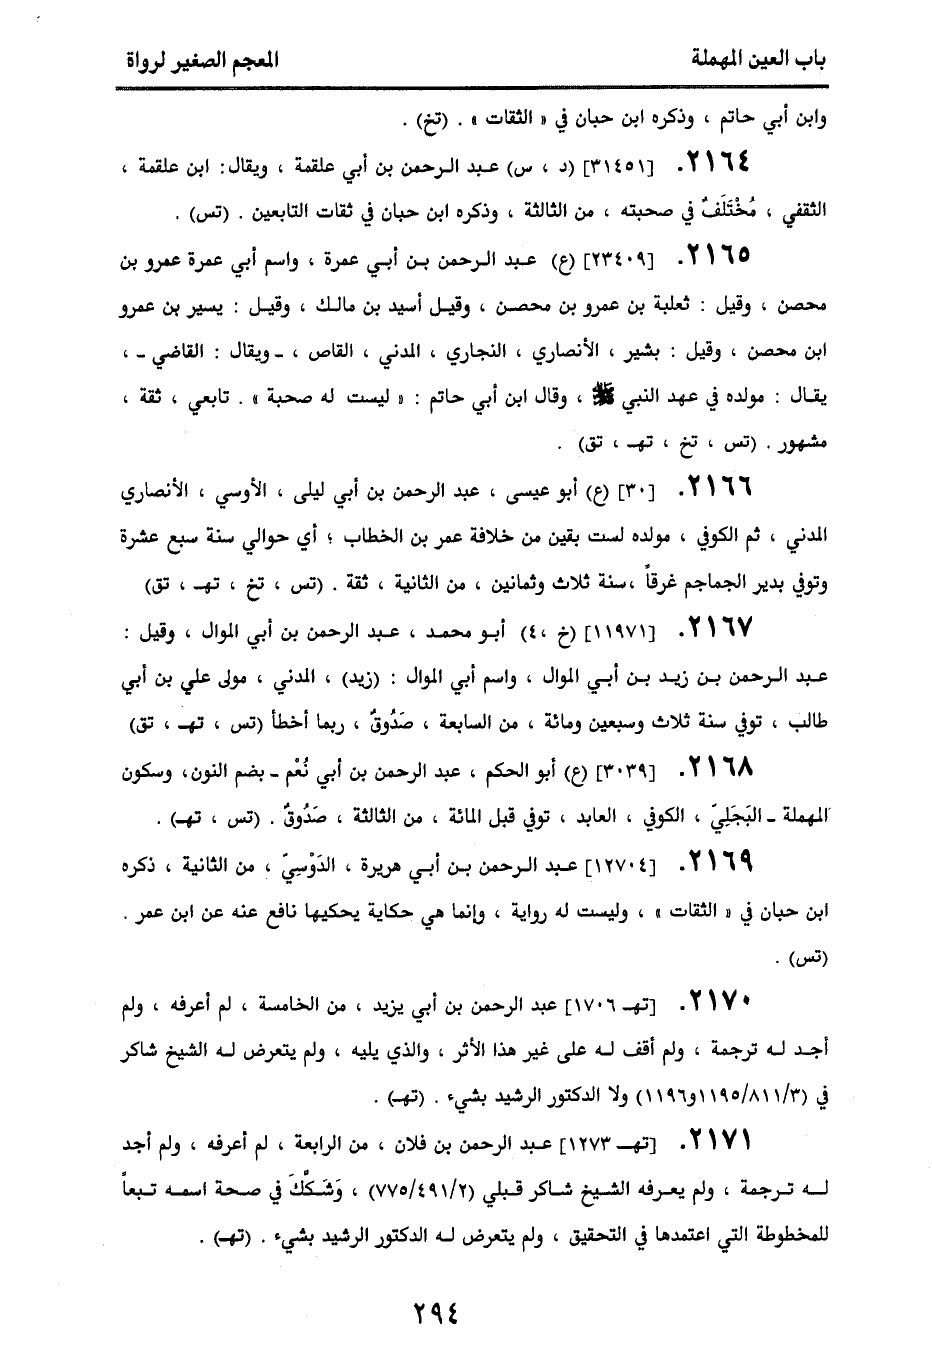 باب العين المهملة
المعجم الصغير لرواة
وابن أبي حاتم ، وذكره ابن حبان في « الثقات » . (تخ) .
٢١٦٤. [٣١٤٥١] (د ، س) عبد الرحمن بن أبي علقمة ، ويقال: ابن علقمة ،
الثقفي ، مُخْتَلَفٌ في صحبته ، من الثالثة ، وذكره ابن حبان في ثقات التابعين . (تس) .
٢١٦٥. [٢٣٤٠٩] (ع) عبد الرحمن بن أبي عمرة ، واسم أبي عمرة عمرو بن
محصن ، وقيل : ثعلبة بن عمرو بن محصن ، وقيل أسيد بن مالك ، وقيل : يسير بن عمرو
ابن محصن ، وقيل : بشير ، الأنصاري ، النجاري ، المدني ، القاص ، ـ ويقال : القاضي ـ ،
يقال : مولده في عهد النبي ﷺ ، وقال ابن أبي حاتم : « ليست له صحبة » . تابعي ، ثقة ،
مشهور . (تس ، تخ ، تهـ ، تق) .
٢١٦٦. [٣٠] (ع) أبو عيسى ، عبد الرحمن بن أبي ليلى ، الأوسي ، الأنصاري
المدني ، ثم الكوفي ، مولده لست بقين من خلافة عمر بن الخطاب ؛ أي حوالي سنة سبع عشرة
وتوفي بدير الجماجم غرقاً ،سنة ثلاث وثمانين ، من الثانية ، ثقة . (تس ، تخ ، تهـ ، تق)
٢١٦٧. [١١٩٧١] (خ ،٤) أبو محمد ، عبد الرحمن بن أبي الموال ، وقيل :
عبد الرحمن بن زيد بن أبي الموال ، واسم أبي الموال : (زيد) ، المدني ، مولى علي بن أبي
طالب ، توفي سنة ثلاث وسبعين ومائة ، من السابعة ، صَدُوقٌ ، ربما أخطأ (تس ، تهـ ، تق)
٢١٦٨. [٣٠٣٩] (ع) أبو الحكم ، عبد الرحمن بن أبي نُعْم ـ بضم النون، وسكون
المهملة ـ البَجَلِيّ ، الكوفي ، العابد ، توفي قبل المائة ، من الثالثة ، صَدُوقٌ . (تس ، تهـ) .
٢١٦٩. [١٢٧٠٤] عبد الرحمن بن أبي هريرة ، الدَوْسِيّ ، من الثانية ، ذكره
ابن حبان في « الثقات » ، وليست له رواية ، وإنما هي حكاية يحكيها نافع عنه عن ابن عمر .
(تس) .
٢١٧٠. [تهـ ١٧٠٦] عبد الرحمن بن أبي يزيد ، من الخامسة ، لم أعرفه ، ولم
أجد له ترجمة ، ولم أقف له على غير هذا الأثر ، والذي يليه ، ولم يتعرض له الشيخ شاكر
في (١١٩٥/٨١١/٣و١١٩٦) ولا الدكتور الرشيد بشيء . (تهـ) .
٢١٧١. [تهـ ١٢٧٣] عبد الرحمن بن فلان ، من الرابعة ، لم أعرفه ، ولم أجد
له ترجمة ، ولم يعرفه الشيخ شاكر قبلي (٧٧٥/٤٩١/٢) ، وَشَكَّكَ في صحة اسمه تبعاً
للمخطوطة التي اعتمدها في التحقيق ، ولم يتعرض له الدكتور الرشيد بشيء . (تهـ) .
٢٩٤